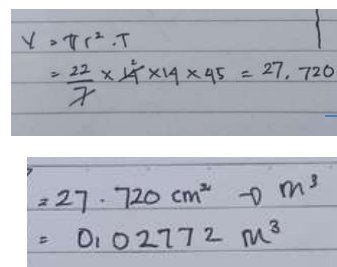 V = πr² . T
= 22/7 × 14 2 × 14 × 45 = 27.720
= 27.720 cm² → m³
= 0,02772 m³